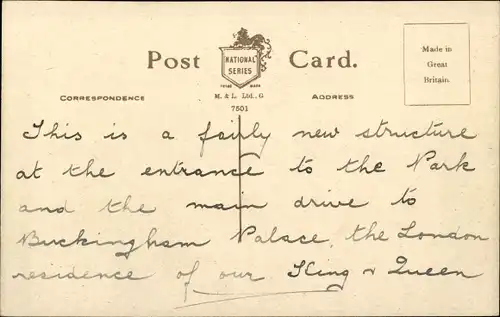 Post Card.
NATIONAL
SERIES
TRADE MARK
M. & L. Ltd., G
7501
CORRESPONDENCE
ADDRESS
Made in
Great
Britain.
This is a fairly new structure
at the entrance to the Park
and the main drive to
Buckingham Palace, the London
residence of our King & Queen